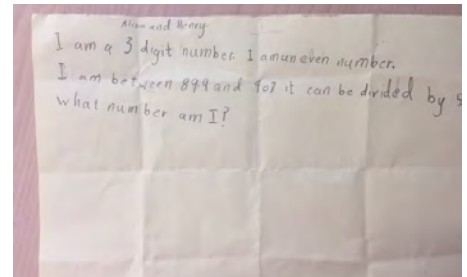 and Henry
I am a 3 digit number. I am an even number.
I am between 899 and it can be divided by
what number am I?